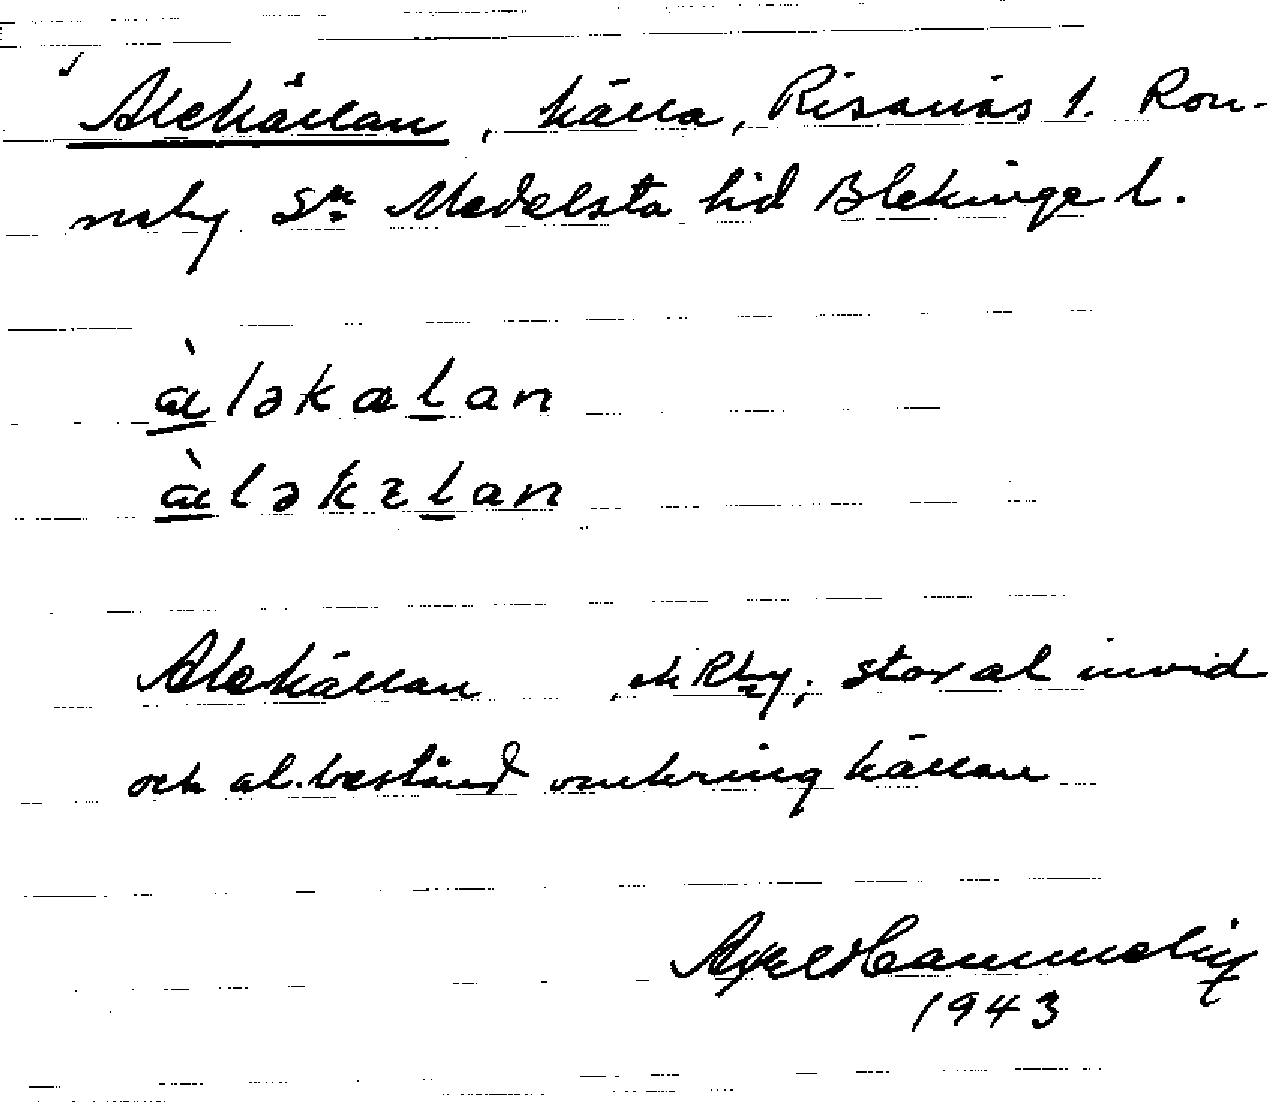 Alekällan, källa, Risanäs 1. Ron-
neby Sn Medelsta hd Blekinge l.
àləkælan
àləkɛlan
Alekällan, stor al invid
och al.bestånd omkring källan
1943